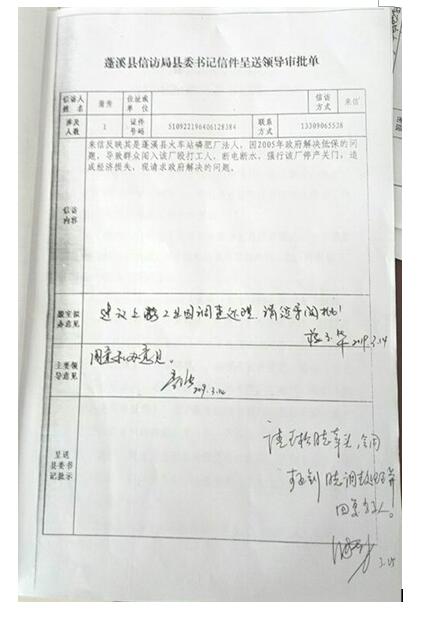 蓬溪县信访局县委书记信件呈送领导审批单
信访人姓名 住址或单位 信访方式 来信
涉及人数 1 证件号码 510922196406128384 联系方式 13309065528
信访内容
来信反映其是蓬溪县火车站磷肥厂法人，因2005年政府解决低保的问
题，导致群众闯入该厂殴打工人，断电断水、强行该厂停产关门，造
成经济损失，现请求政府解决的问题。
办意见
建议上 工业园调查处理，请 导阅批！
2019.3.14
主要领导意见
同意拟办意见。
2019.3.14
呈送县委书记批示
请 牵头，会同
调 处理并
回复 人。
3.15